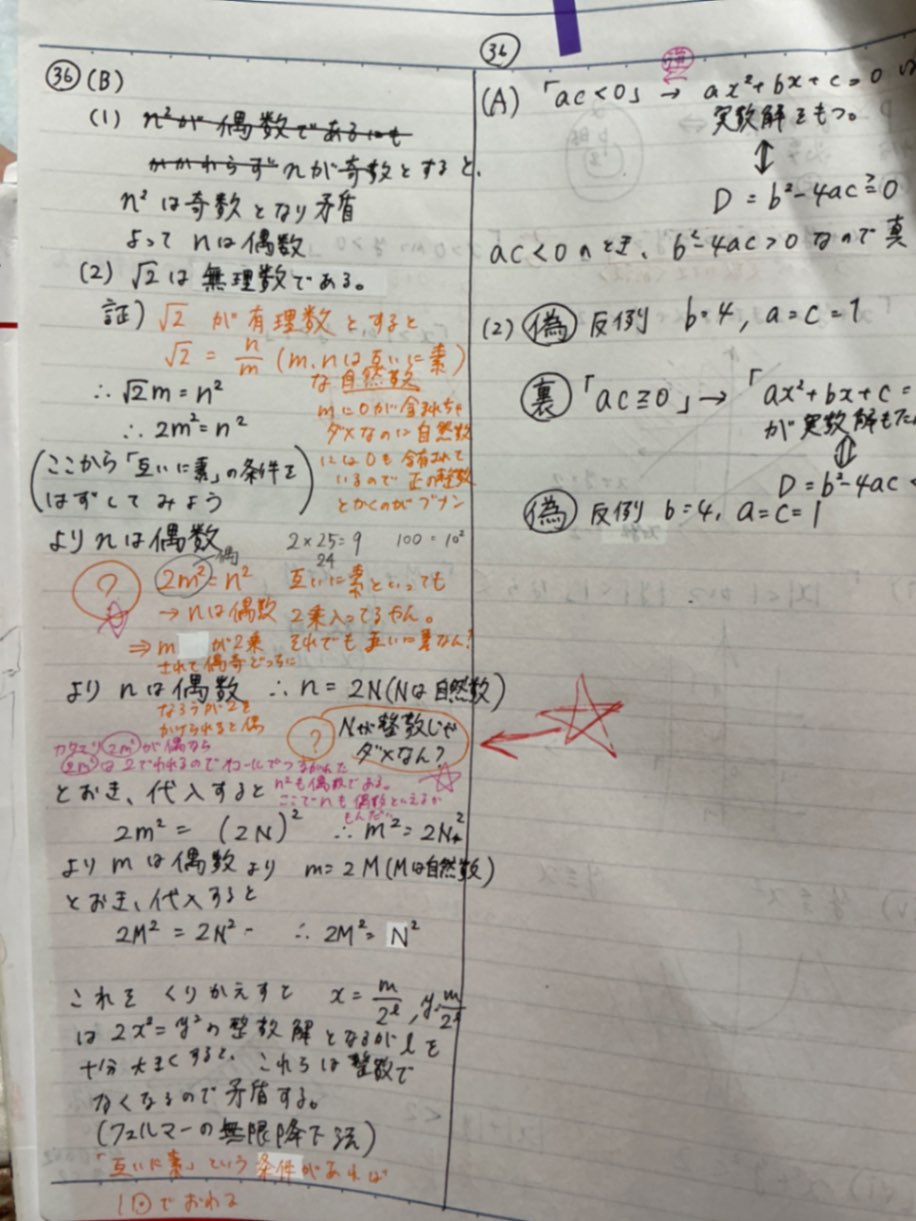 36 (B)
(1) n²が偶数であるにも
かかわらずnが奇数とすると、
n²は奇数となり矛盾
よってnは偶数
(2) √2は無理数である。
証) √2が有理数とすると
√2 = n/m (m,nは互いに素
な自然数)
∴√2m=n²
∴2m²=n²
mに0が含まれちゃ
ダメなのに自然数
には0も含有されて
いるので正の整数
とかくのがブナン
(ここから「互いに素」の条件を
はずしてみよう)
よりnは偶数
2×25=9 100=10²
24
偶
? 2m²=n² 互いに素といっても
→nは偶数 2乗入ってるやん。
⇒m が2乗 それでも互いに素なん?
されて偶奇どっちに
よりnは偶数 ∴n=2N(Nは自然数)
なろうが2を
かけられると偶
? Nが整数じゃ
ダメなん?
カタマリ2m²が偶なら
2m²は2でわれるのでイコールでつながれた
n²も偶数である。
ここでnも偶数といえるか
もんだい
とおき、代入すると
2m² = (2N)² ∴m²=2N²
よりmは偶数より m=2M(Mは自然数)
とおき、代入すると
2M²=2N² ∴2M²=N²
これをくりかえすと x=m/2ˡ, y=m/2ˡ
は2x²=y²の整数解となるがlを
十分大きくすると、これらは整数で
なくなるので矛盾する。
(フェルマーの無限降下法)
「互いに素」という条件があれば
1回でおわる
36
(A) 「ac<0」→ ax²+bx+c=0
実数解をもつ。
↕
D=b²-4ac≧0
ac<0のとき、b²-4ac>0なので真
(2) 偽 反例 b=4, a=c=1
裏 「ac≧0」→「ax²+bx+c=
が実数解もた
↕
D=b²-4ac<
偽 反例 b=4, a=c=1